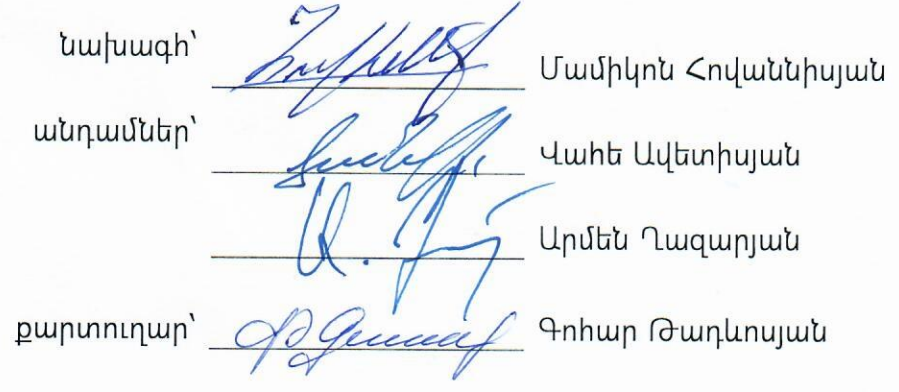 նախագհ՝ Մամիկոն Հովաննիսյան
անդամներ՝ Վահե Ավետիսյան
Արմեն Ղազարյան
քարտուղար՝ Գոհար Թադևոսյան